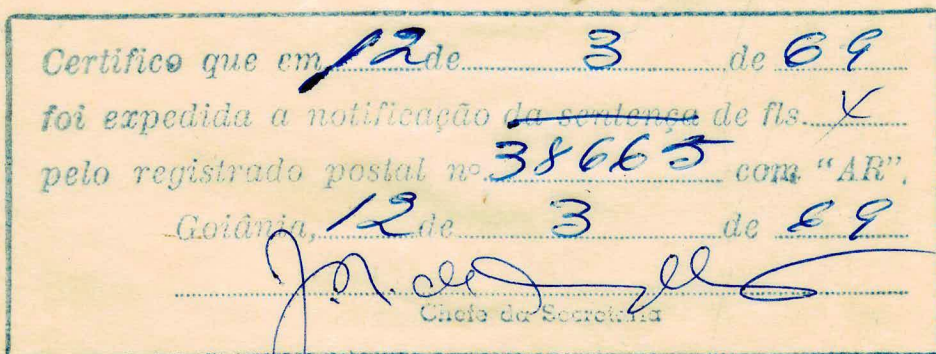 Certifico que em 12 de 3 de 69
foi expedida a notificação da sentença de fls. X
pelo registrado postal nº 38665 com "AR".
Goiânia, 12 de 3 de 69
Chefe da Secretaria